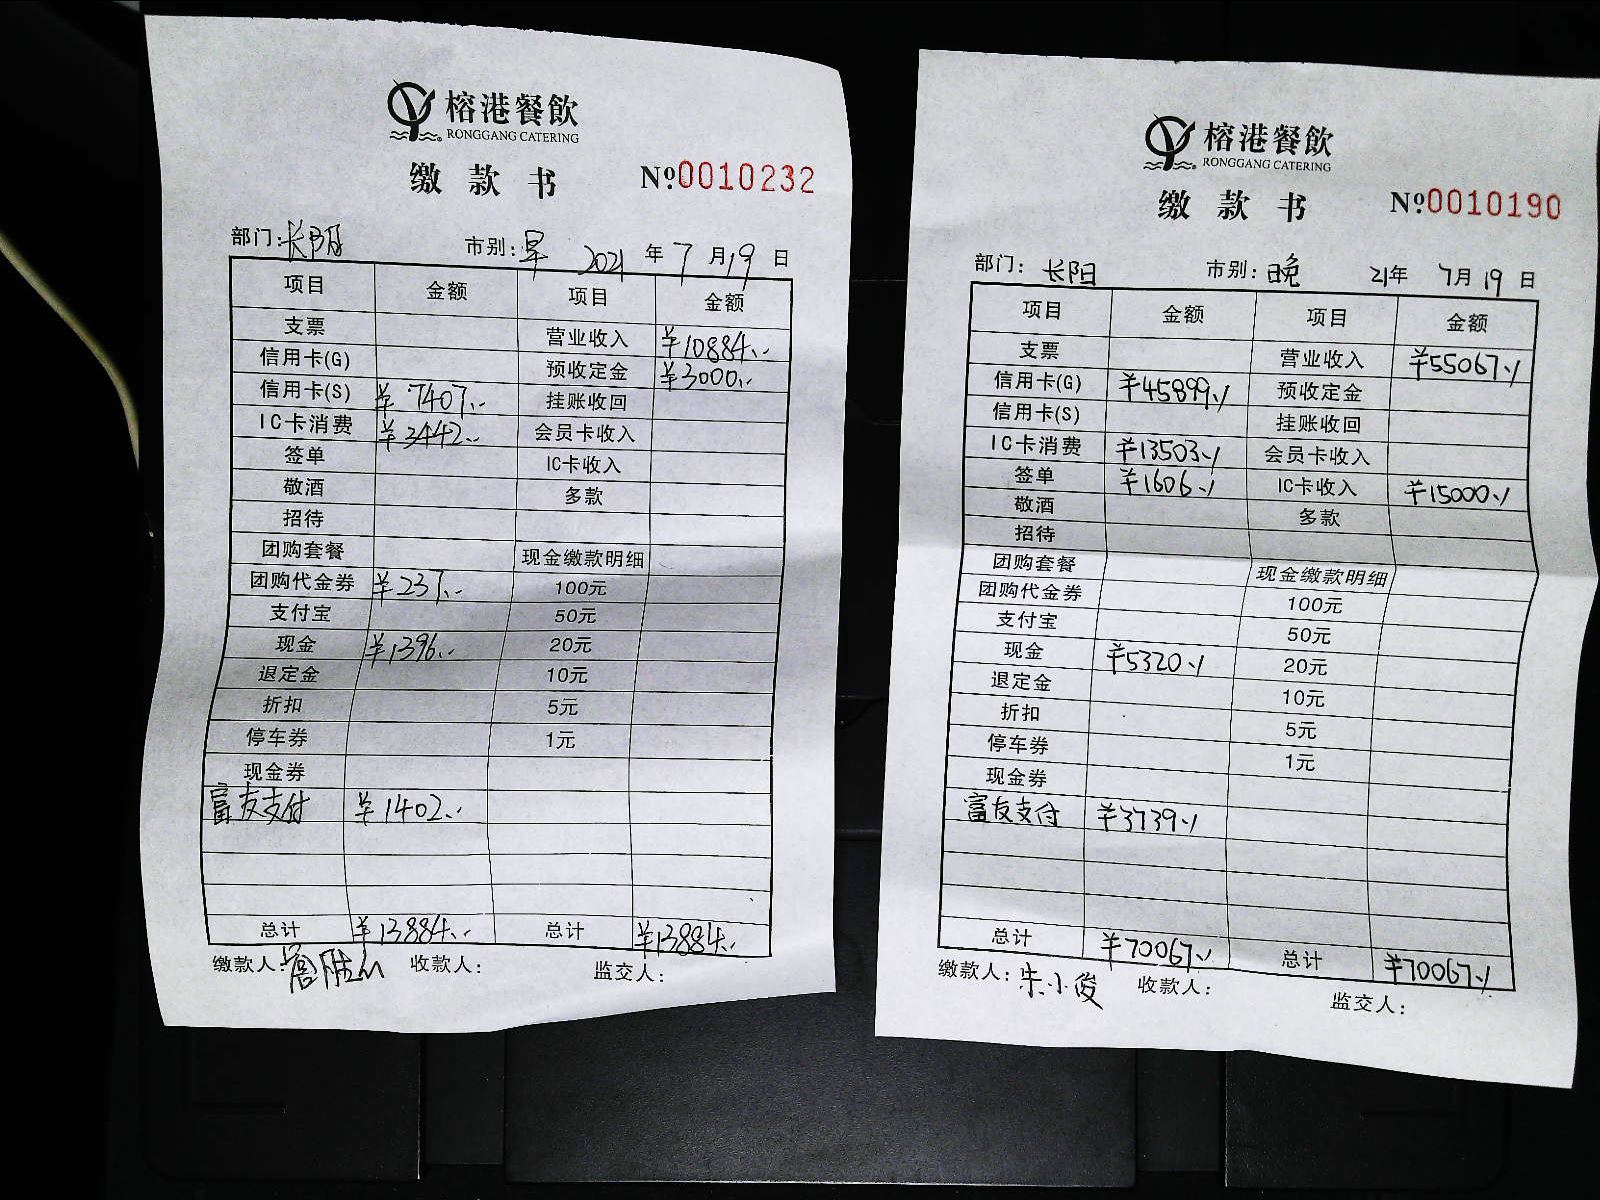 榕港餐飲
RONGGANG CATERING
缴款书 №0010232
部门:长阳 市别:早 2021年7月19日
项目 金额 项目 金额
支票 营业收入 ¥10884.--
信用卡(G) 预收定金 ¥3000.--
信用卡(S) ¥7407.-- 挂账收回
IC卡消费 ¥3442.-- 会员卡收入
签单 IC卡收入
敬酒 多款
招待
团购套餐 现金缴款明细
团购代金券 ¥237.-- 100元
支付宝 50元
现金 ¥1396.-- 20元
退定金 10元
折扣 5元
停车券 1元
现金券
富友支付 ¥1402.--
总计 ¥13884.-- 总计 ¥13884.--
缴款人: 收款人: 监交人:
榕港餐飲
RONGGANG CATERING
缴款书 №0010190
部门: 长阳 市别:晚 21年7月19日
项目 金额 项目 金额
支票 营业收入 ¥55067.-/
信用卡(G) ¥45899.-/ 预收定金
信用卡(S) 挂账收回
IC卡消费 ¥13503.-/ 会员卡收入
签单 ¥1606.-/ IC卡收入 ¥15000.-/
敬酒 多款
招待
团购套餐 现金缴款明细
团购代金券 100元
支付宝 50元
现金 ¥5320.-/ 20元
退定金 10元
折扣 5元
停车券 1元
现金券
富友支付 ¥3739.-/
总计 ¥70067.-/ 总计 ¥70067.-/
缴款人:朱小俊 收款人: 监交人: